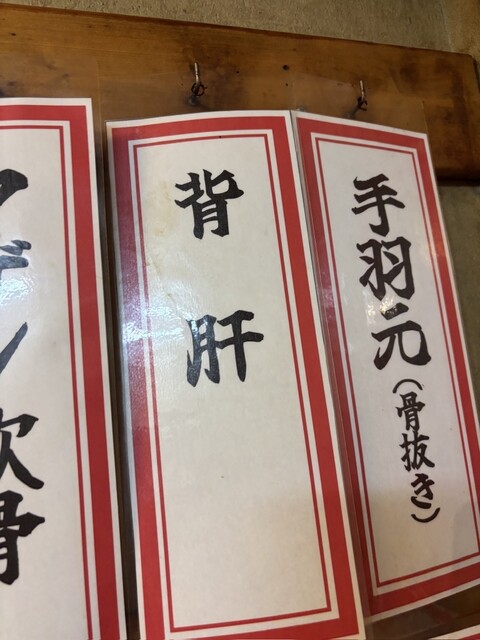 手羽元(骨抜き)
背肝
ゲン軟骨